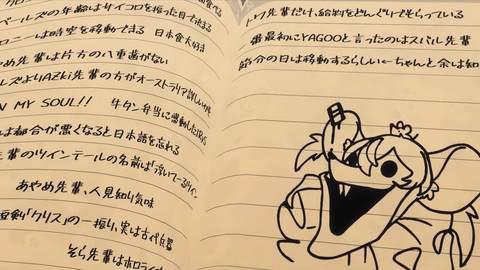 ベールズの年齢はサイコロを振った目できまる
ロニーは時空を移動できる 日本食大好き
やめ先輩は片方の八重歯がない
ルズよりAZKi先輩の方がオーストラリア詳しい
N MY SOUL!! 牛タン弁当に感動したIRyS
は都合が悪くなると日本語を忘れる
先輩のツインテールの名前は浮いてるツイン
あやめ先輩、人見知り気味
短剣「クリス」の一振り、実は古代兵器
そら先輩はホロライ
トワ先輩だけ、給料をどんぐりでもらっている
番最初にYAGOOと言ったのはスバル先輩
節分の日は移動するらしい←ちゃんと余は知